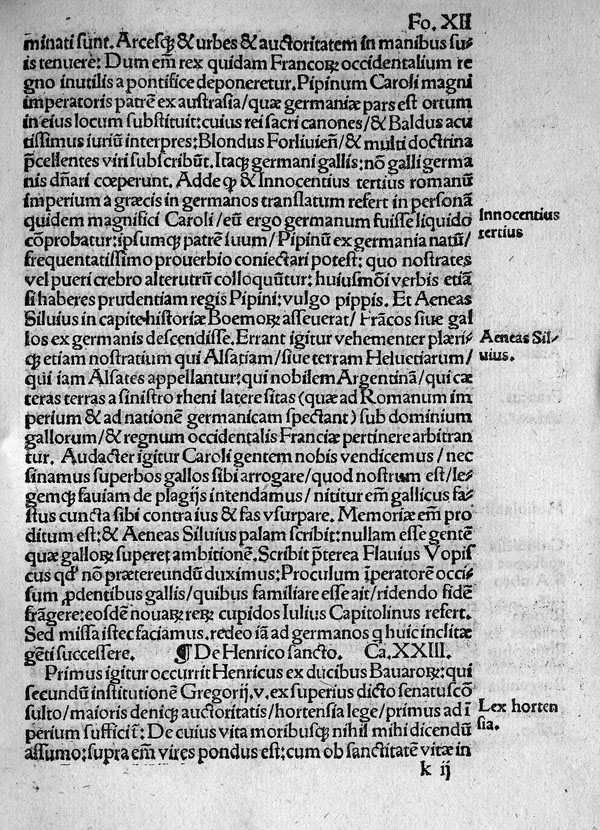 Fo. XII
minati sunt. Arcesq; & urbes & auctoritatem in manibus su/
is tenuere: Dum em̄ rex quidam Francoꝝ occidentalium re
gno inutilis a pontifice deponeretur. Pipinum Caroli magni
imperatoris patrē ex austrasia/quæ germaniæ pars est ortum
in eius locum substituit: cuius rei sacri canones/& Baldus acu
tissimus iuriū interpres: Blondus Forliuień/& multi doctrina
p̄cellentes viri subscribūt. Itaq; germani gallis: nō galli germa
nis dn̄ari cœperunt. Adde ꝙ & Innocentius tertius romanū
imperium a græcis in germanos translatum refert in personā
quidem magnifici Caroli/eū ergo germanum fuisse liquido
cōprobatur: ipsumq; patrē suum/Pipinū ex germania natū/
frequentatissimo prouerbio coniectari potest: quo nostrates
vel pueri crebro alterutrū colloquūtur: huiusmōi verbis etiā
si haberes prudentiam regis Pipini: vulgo pippis. Et Aeneas
Siluius in capite historiæ Boemoꝝ asseuerat/Frācos siue gal
los ex germanis descendisse. Errant igitur vehementer plæri/
q; etiam nostratium qui Alsatiam/siue terram Heluetiarum/
qui iam Alsates appellantur: qui nobilem Argentinā/qui cæ
teras terras a sinistro rheni latere sitas (quæ ad Romanum im
perium & ad nationē germanicam spectant) sub dominium
gallorum/& regnum occidentalis Franciæ pertinere arbitran
tur. Audacter igitur Caroli gentem nobis vendicemus/nec
sinamus superbos gallos sibi arrogare/quod nostrum est/le/
gemq; fauiam de plagijs intendamus/nititur em̄ gallicus fa/
stus cuncta sibi contra ius & fas vsurpare. Memoriæ em̄ pro
ditum est: & Aeneas Siluius palam scribit: nullam esse gentē
quæ galloꝝ superet ambitionē. Scribit p̄terea Flauius Vopis
cus qđ nō prætereundū duximus: Proculum īperatorē occi/
sum ꝓdentibus gallis/quibus familiare esse ait/ridendo fidē
frāgere: eosdē nouaꝝ reꝝ cupidos Iulius Capitolinus refert.
Sed missa istec faciamus. redeo iā ad germanos q huic inclitæ
gēti successere. ¶ De Henrico sancto. Ca. XXIII.
Primus igitur occurrit Henricus ex ducibus Bauaroꝝ: qui
secundū institutionē Gregorij. v. ex superius dicto senatuscō
sulto/maioris deniq; auctoritatis/hortensia lege/primus ad ī
perium sufficit: De cuius vita moribusq; nihil mihi dicendū
assumo: supra em̄ vires pondus est: cum ob sanctitatē vitæ in
k ij
Innocentius
tertius
Aeneas Sil/
uius.
Lex horten
sia.